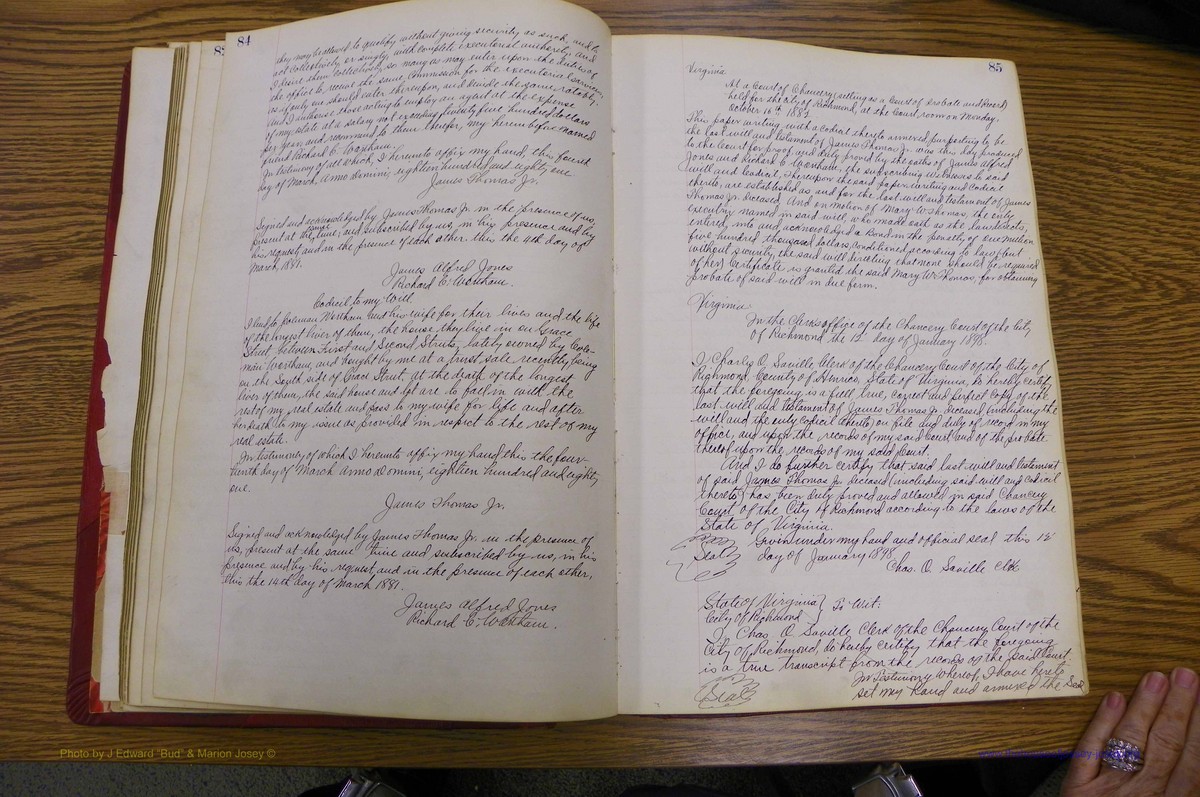 84
they may be allowed to qualify without giving security as such, and to
act collectively or singly, with complete executorial authority, and
I desire them collectively, so many as may enter upon the duties of
the office to receive the same Commission for the executorial services
as if only one should enter thereupon, and divide the same ratably,
and I authorize those acting to employ an agent at the expense
of my estate at a salary not exceeding twenty five hundred dollars
per year, and recommend to them therefor, my herein before named
friend Richard C. Wortham.
In testimony of all which, I hereunto affix my hand, this fourth
day of March, Anno domini, eighteen hundred and eighty one
James Thomas Jr.
Signed and acknowledged by James Thomas Jr. in the presence of us,
present at the same time, and subscribed by us, in his presence and by
his request, and in the presence of each other this the 4th day of
March, 1881.
James Alfred Jones
Richard C. Wortham.
Codicil to my Will
I lend to Coleman Wortham and his wife for their lives and the life
of the longest liver of them, the house they live in on Grace
Street, between First and Second Streets, lately owned by Cole-
man Wortham, and bought by me at a trust sale recently, being
on the South side of Grace Street, at the death of the longest
liver of them, the said house and lot are to fall in with the
rest of my real estate and pass to my wife for life and after
her death to my issue as provided in respect to the rest of my
real estate.
In testimony of which I hereunto affix my hand this the four-
teenth day of March Anno Domini, eighteen hundred and eighty
one.
James Thomas Jr.
Signed and acknowledged by James Thomas Jr. in the presence of
us, present at the same time and subscribed by us, in his
presence and by his request, and in the presence of each other,
this the 14th day of March 1881.
James Alfred Jones
Richard C. Wortham.
85
Virginia
At a Court of Chancery (sitting as a Court of Probate and Record)
held for the city of Richmond, at the Court room on Monday,
October 16th 1882.
This paper writing with a Codicil thereto annexed, purporting to be
the last will and testament of James Thomas Jr. was this day produced
to the Court for proof, and duly proved by the oaths of James Alfred
Jones and Richard C. Wortham, the subscribing witnesses to said
will and Codicil, Whereupon the said paper writing and Codicil
thereto, are established as and for the last will and testament of James
Thomas Jr. deceased. And on motion of Mary W. Thomas, the only
executrix named in said will, who made oath as the law directs,
entered into and acknowledged a Bond in the penalty of one Million
five hundred thousand dollars, conditioned according to law (but
without security, the said will directing that none should be required
of her) Certificate is granted the said Mary W. Thomas, for obtaining
probate of said will in due form.
Virginia
In the Clerk's office of the Chancery Court of the City
of Richmond the 12 day of January 1898.
I, Charles O. Saville Clerk of the Chancery Court of the City of
Richmond, County of Henrico, State of Virginia, do hereby certify
that the foregoing is a full, true, correct and perfect copy of the
last will and testament of James Thomas Jr. deceased (including the
will and the only codicil thereto) on file and duly of record in my
office, and upon the records of my said Court and of the probate
thereof upon the records of my said Court.
And I do further certify that said last will and testament
of said James Thomas Jr. deceased (including said will and codicil
thereto) has been duly proved and allowed in said Chancery
Court of the City of Richmond according to the laws of the
State of Virginia.
Given under my hand and official seal this 12
Seal
day of January 1898.
Chas. O. Saville Clk
State of Virginia } To Wit:
City of Richmond
I, Chas. O Saville Clerk of the Chancery Court of the
City of Richmond, do hereby certify that the foregoing
is a true transcript from the records of the said Court.
In Testimony whereof, I have here to
Seal
set my hand and annexed the Seal
Photo by J Edward "Bud" & Marion Josey ©